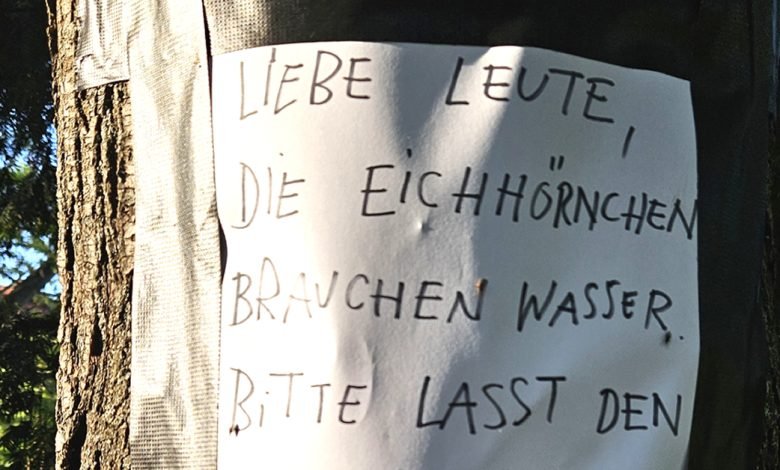 LIEBE LEUTE,
DIE EICHHÖRNCHEN
BRAUCHEN WASSER.
BITTE LASST DEN